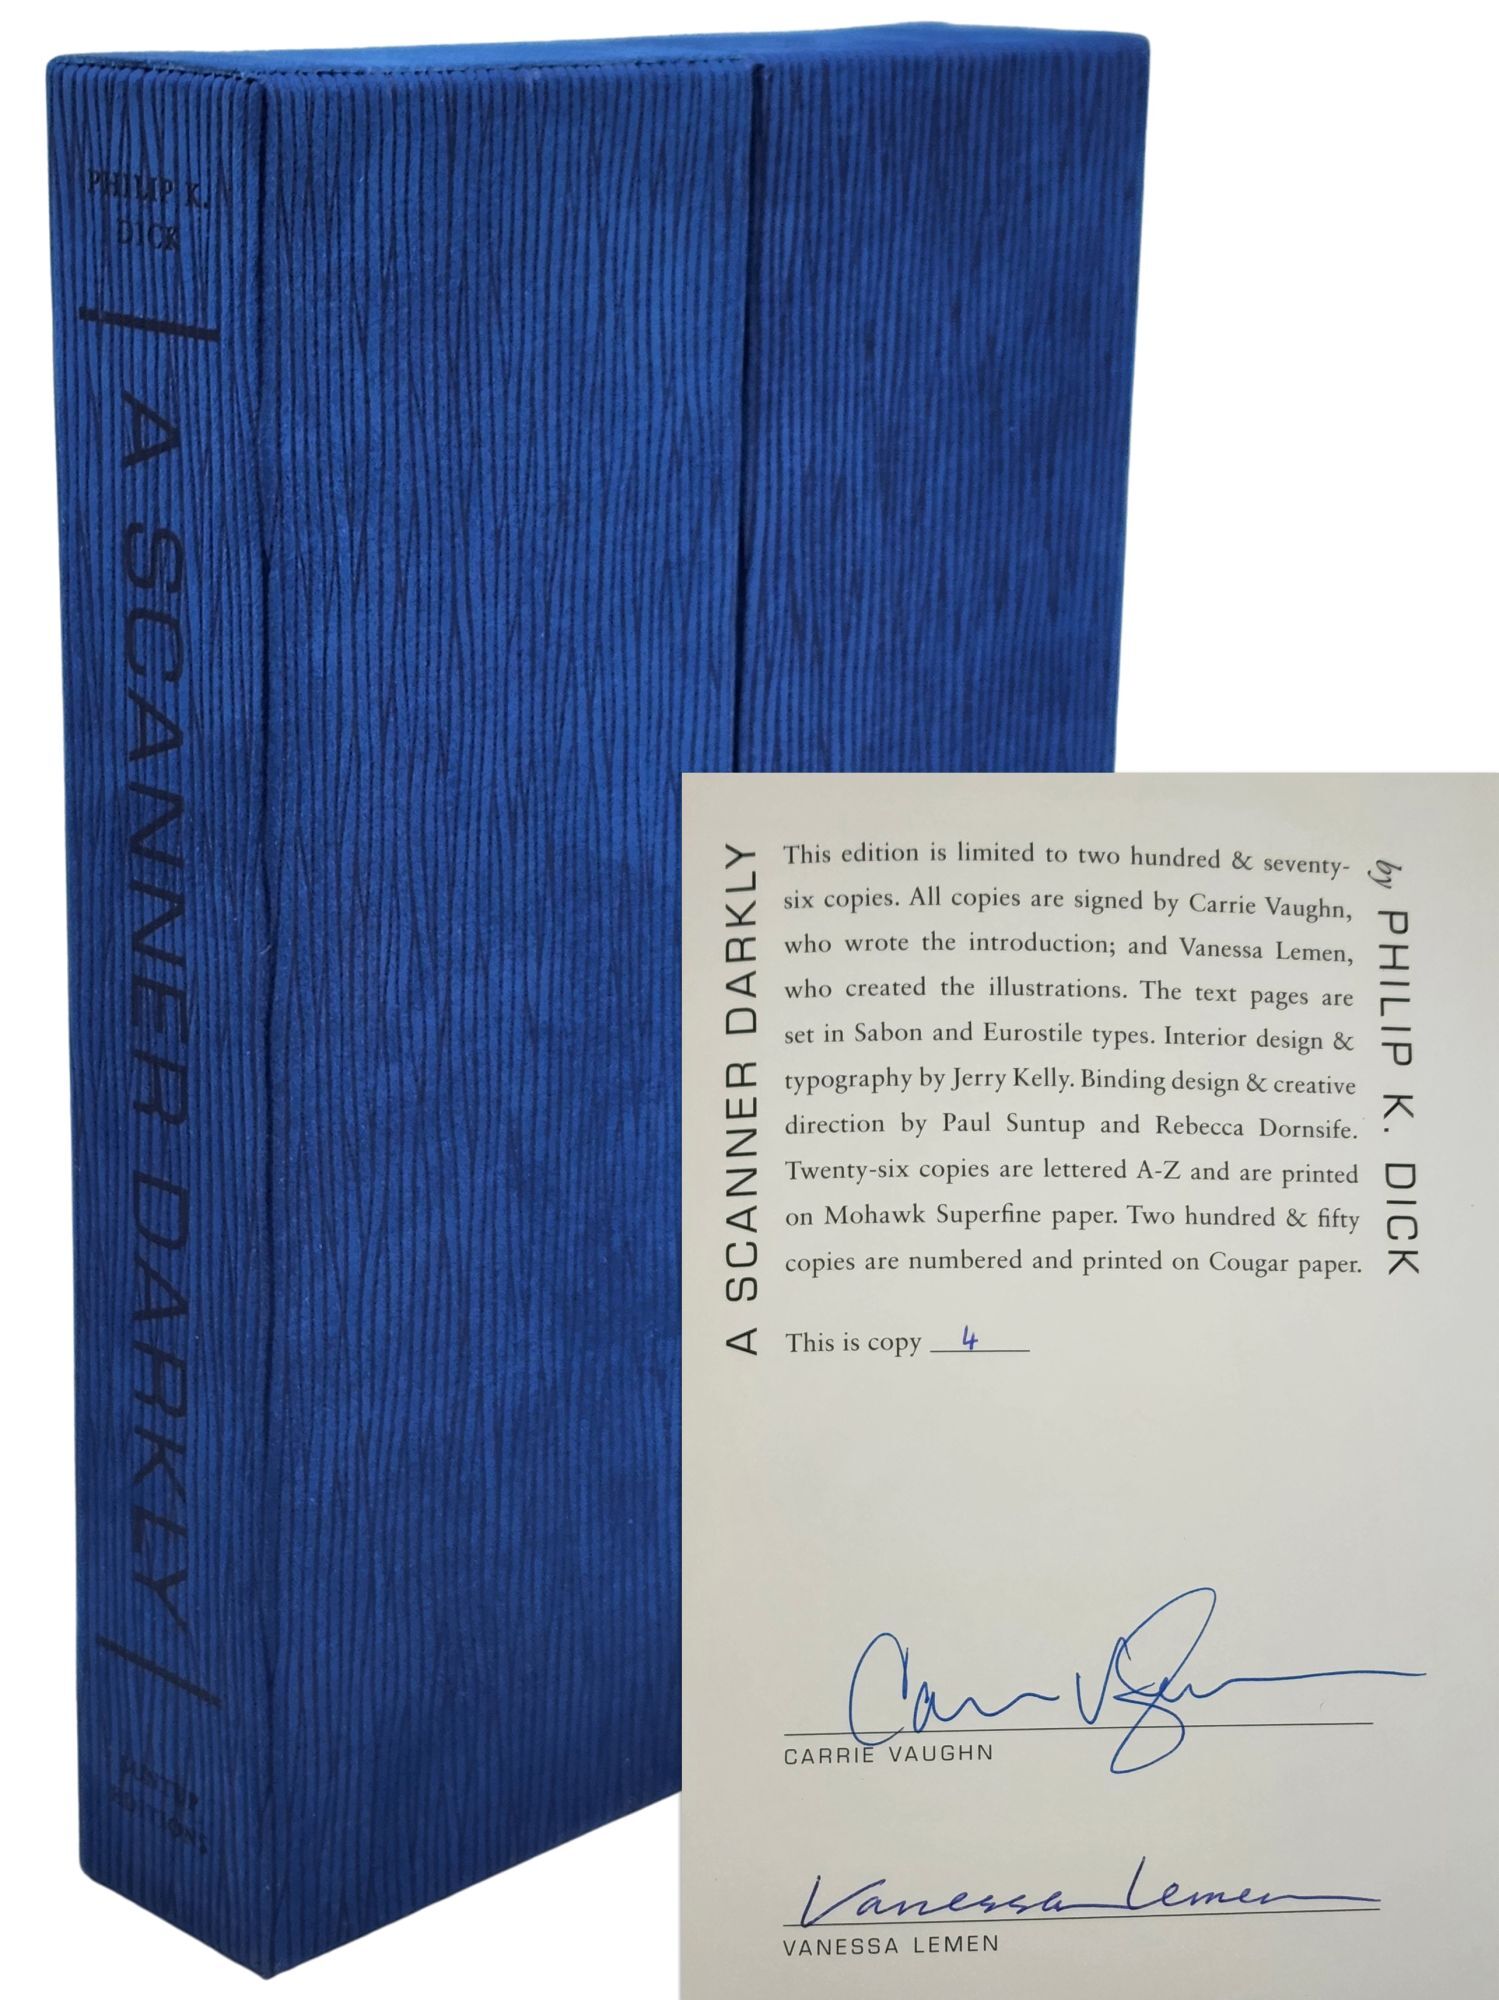 PHILIP K.
DICK
A SCANNER DARKLY
SUNTUP
EDITIONS
A SCANNER DARKLY
This edition is limited to two hundred & seventy-
six copies. All copies are signed by Carrie Vaughn,
who wrote the introduction; and Vanessa Lemen,
who created the illustrations. The text pages are
set in Sabon and Eurostile types. Interior design &
typography by Jerry Kelly. Binding design & creative
direction by Paul Suntup and Rebecca Dornsife.
Twenty-six copies are lettered A-Z and are printed
on Mohawk Superfine paper. Two hundred & fifty
copies are numbered and printed on Cougar paper.
by PHILIP K. DICK
This is copy 4
Carrie Vaughn
CARRIE VAUGHN
Vanessa Lemen
VANESSA LEMEN